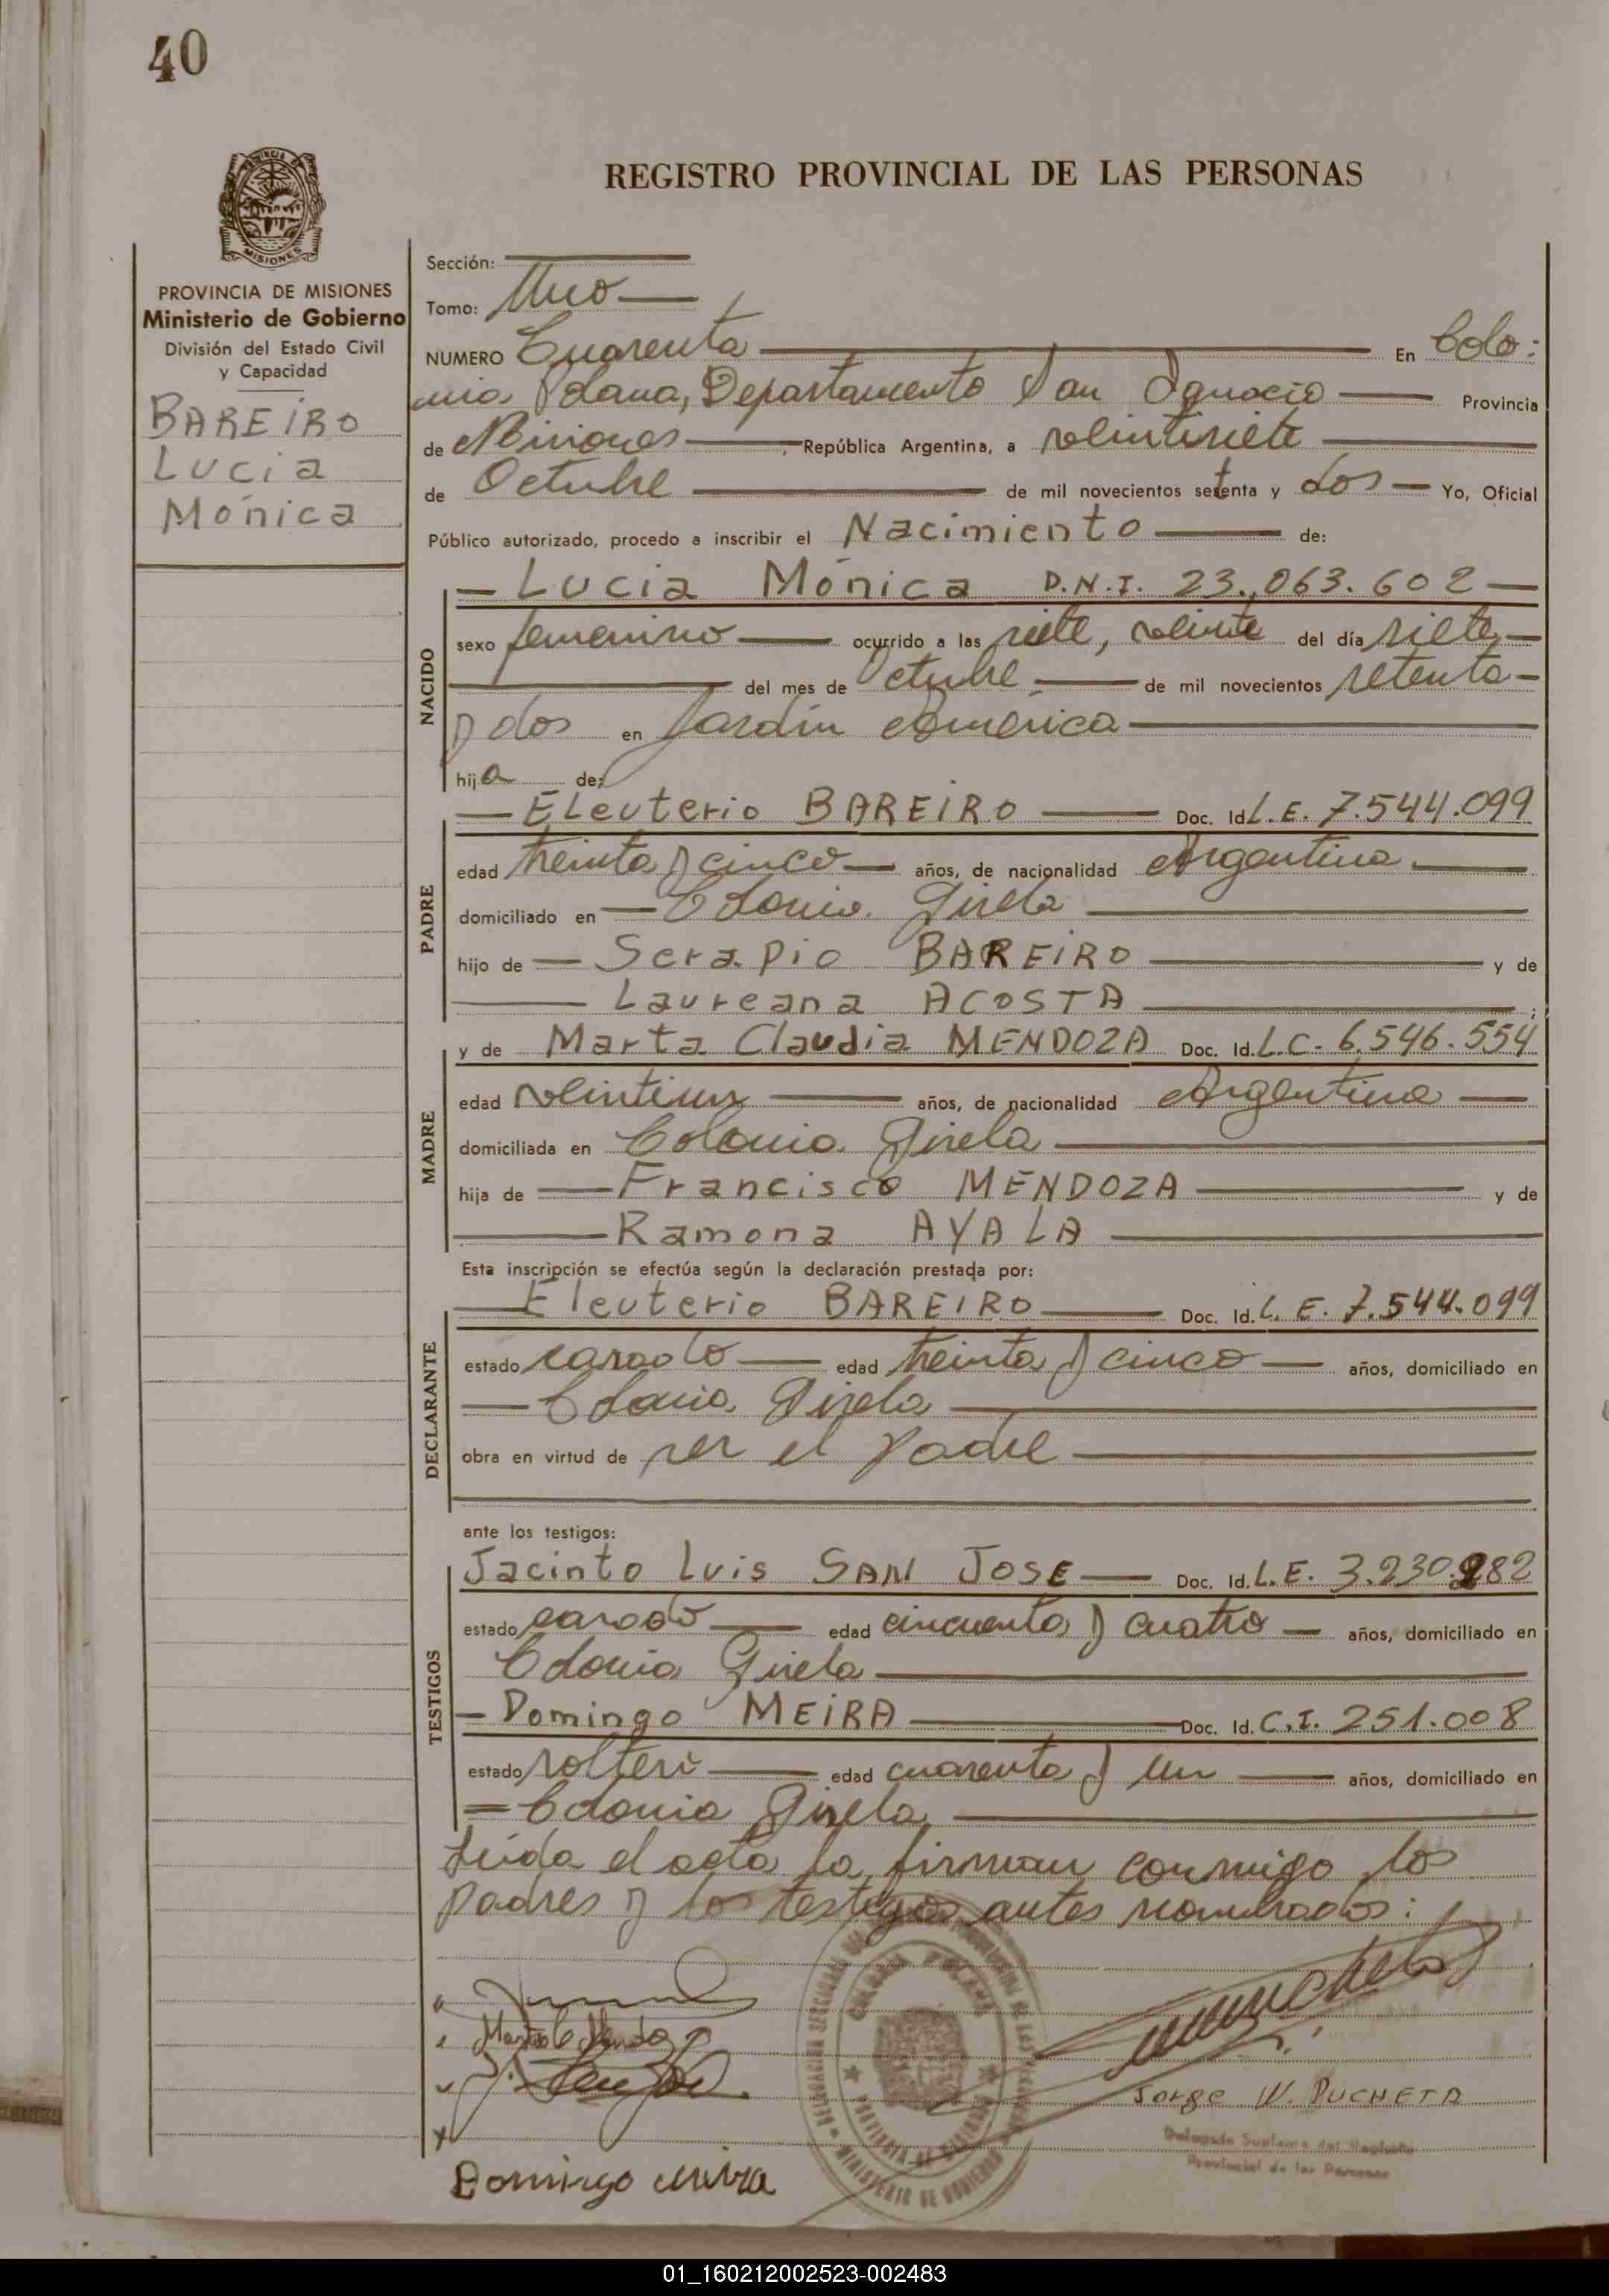 40
REGISTRO PROVINCIAL DE LAS PERSONAS
MISIONES
PROVINCIA DE MISIONES
Ministerio de Gobierno
División del Estado Civil
y Capacidad
BAREIRO
Lucia
Mónica
Sección:
Tomo: Uno
NUMERO Cuarenta En Colo:
nia Polana, Departamento San Ignacio Provincia
de Misiones, República Argentina, a veintisiete
de Octubre de mil novecientos setenta y dos Yo, Oficial
Público autorizado, procedo a inscribir el Nacimiento de:
Lucia Mónica D.N.I. 23.063.602
NACIDO
sexo femenino ocurrido a las siete, veinte del día siete
del mes de Octubre de mil novecientos setenta
y dos en Jardín América
hija de:
Eleuterio BAREIRO Doc. Id. L.E. 7.544.099
PADRE
edad treinta y cinco años, de nacionalidad Argentina
domiciliado en Colonia Gisela
hijo de Serapio BAREIRO y de
Laureana ACOSTA;
y de Marta Claudia MENDOZA Doc. Id. L.C. 6.546.554
MADRE
edad veintiun años, de nacionalidad Argentina
domiciliada en Colonia Gisela
hija de Francisco MENDOZA y de
Ramona AYALA
Esta inscripción se efectúa según la declaración prestada por:
Eleuterio BAREIRO Doc. Id. L.E. 7.544.099
DECLARANTE
estado casado edad treinta y cinco años, domiciliado en
Colonia Gisela
obra en virtud de ser el padre
ante los testigos:
Jacinto Luis SAN JOSE Doc. Id. L.E. 3.230.282
TESTIGOS
estado casado edad cincuenta y cuatro años, domiciliado en
Colonia Gisela
Domingo MEIRA Doc. Id. C.I. 251.008
estado soltero edad cuarenta y un años, domiciliado en
Colonia Gisela
Leída el acta la firman conmigo los
padres y los testigos antes nombrados:
Marta C Mendoza
Jorge W. PUCHETA
Delegado Suplente del Registro
Provincial de las Personas
Domingo Meira
01_160212002523-002483